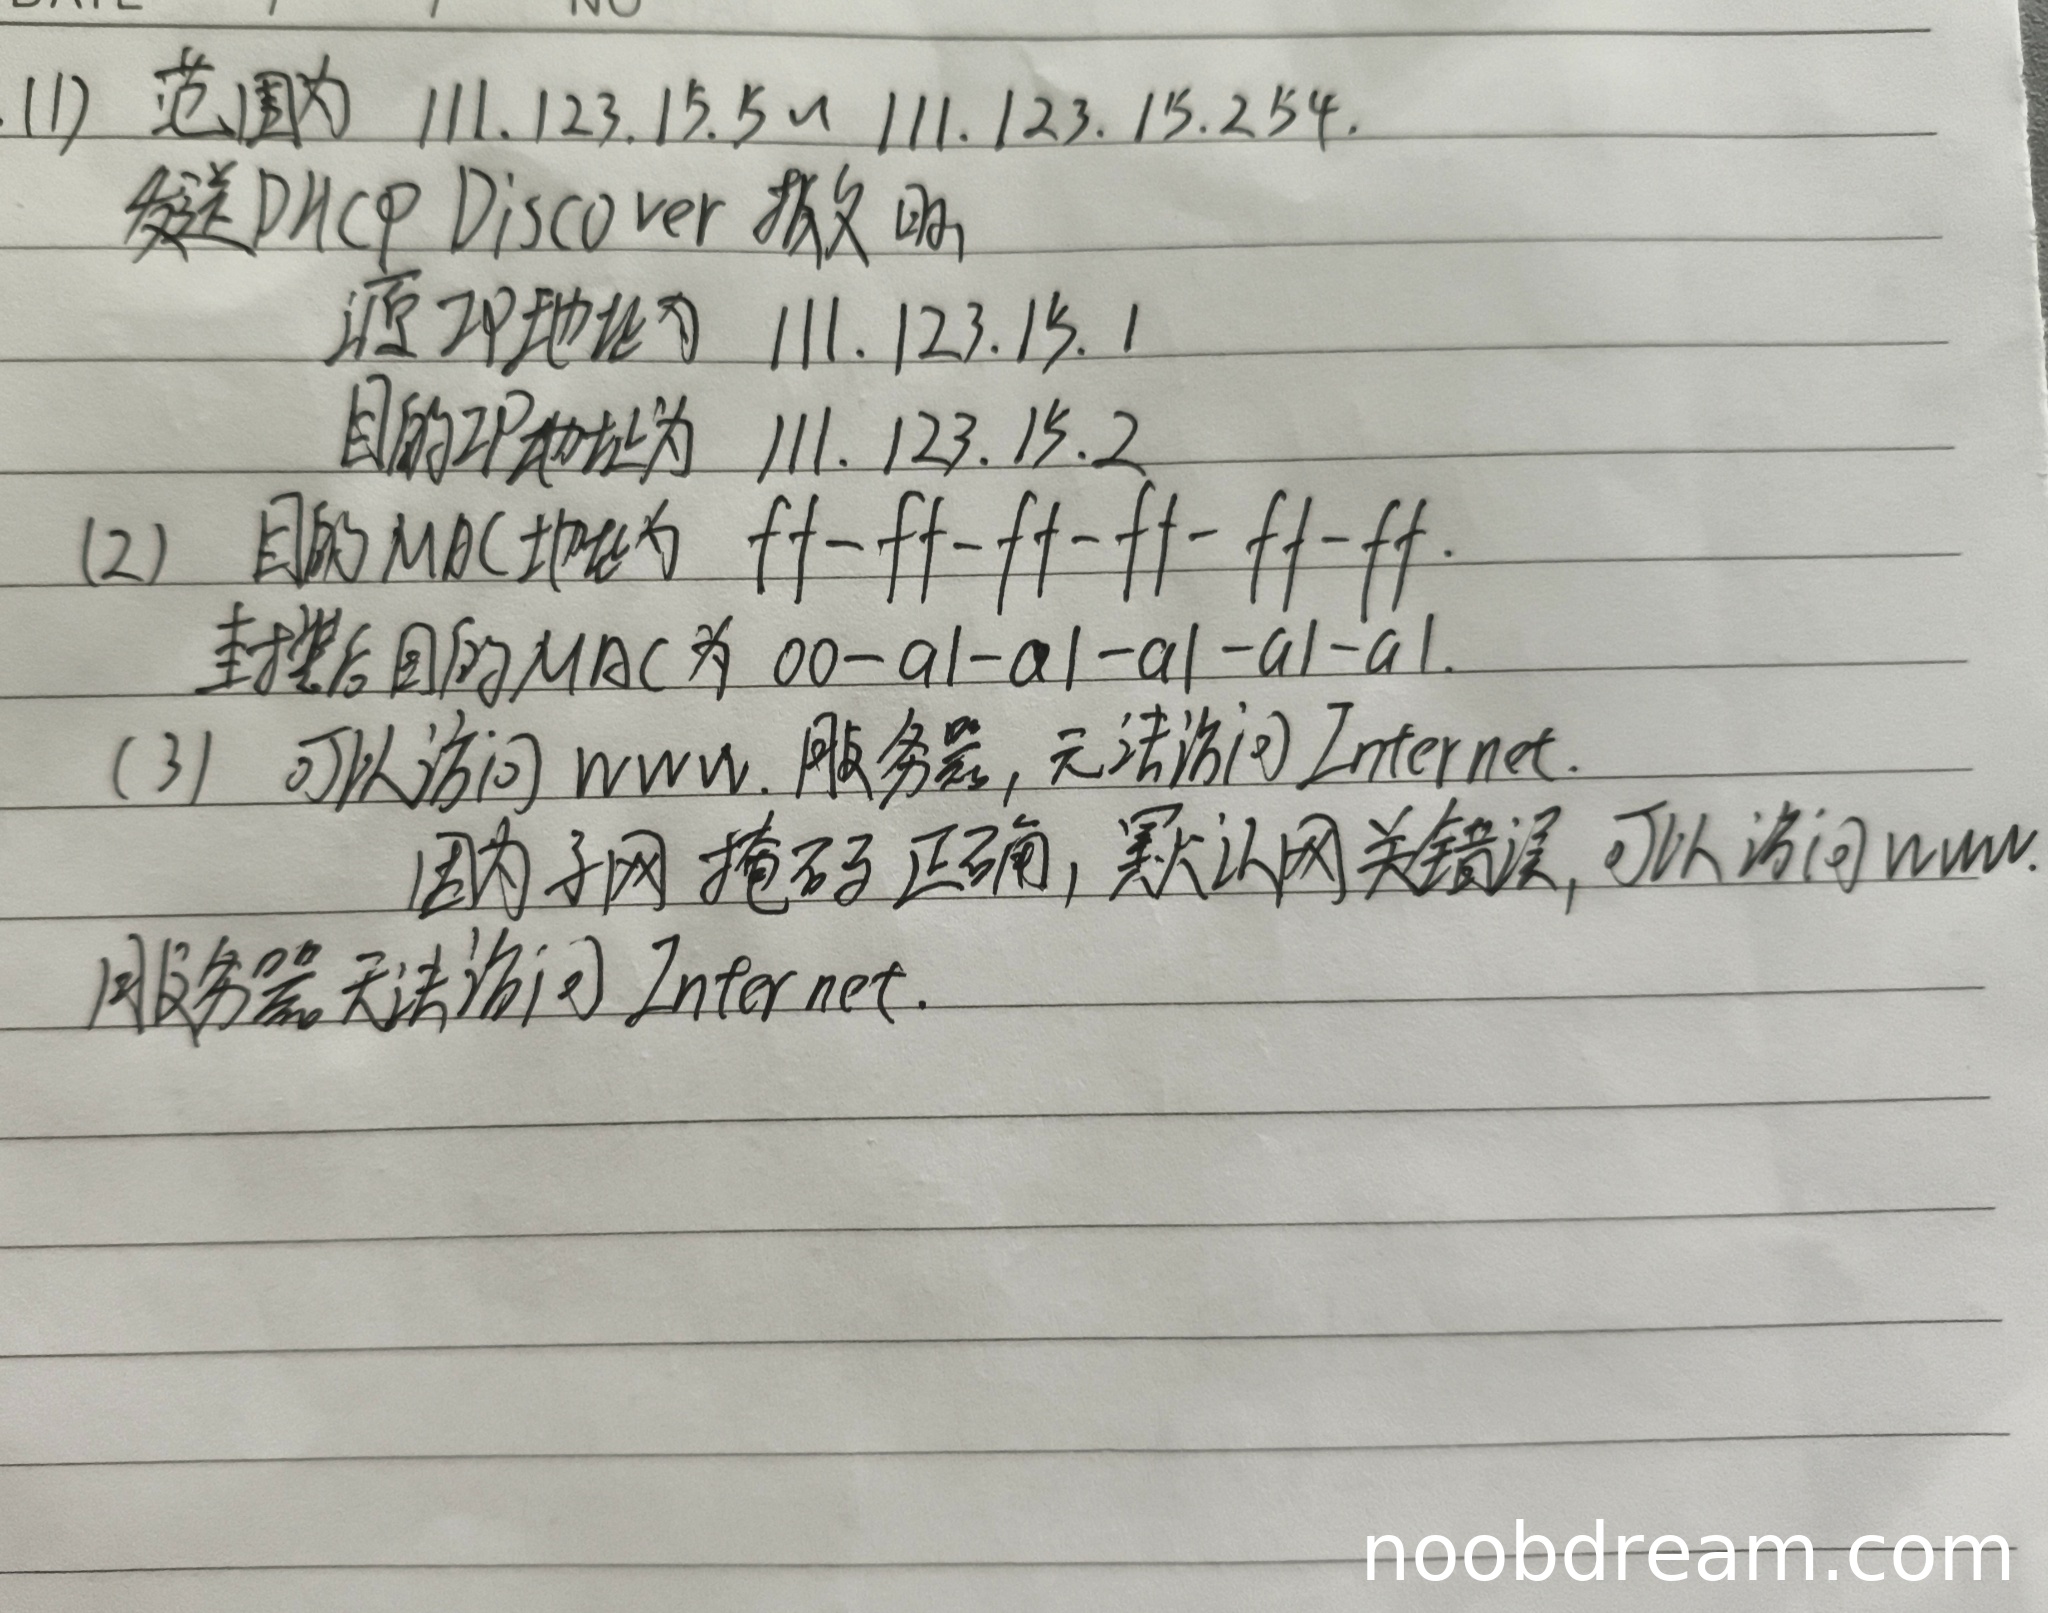 DATE / / NO
(1) 范围为 111.123.15.5 ~ 111.123.15.254.
发送DHCP Discover 报文时,
源IP地址为 111.123.15.1
目的IP地址为 111.123.15.2
(2) 目的MAC地址为 ff-ff-ff-ff-ff-ff.
封装后目的MAC为 00-a1-a1-a1-a1-a1.
(3) 可以访问 WWW. 服务器, 无法访问 Internet.
因为子网掩码正确, 默认网关错误, 可以访问 WWW.
服务器无法访问 Internet.
noobdream.com